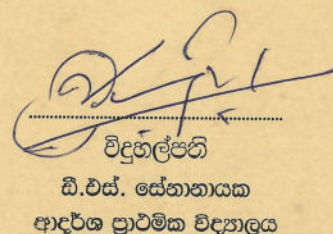 විදුහල්පති
ඩී.එස්. සේනානායක
ආදර්ශ ප්‍රාථමික විද්‍යාලය